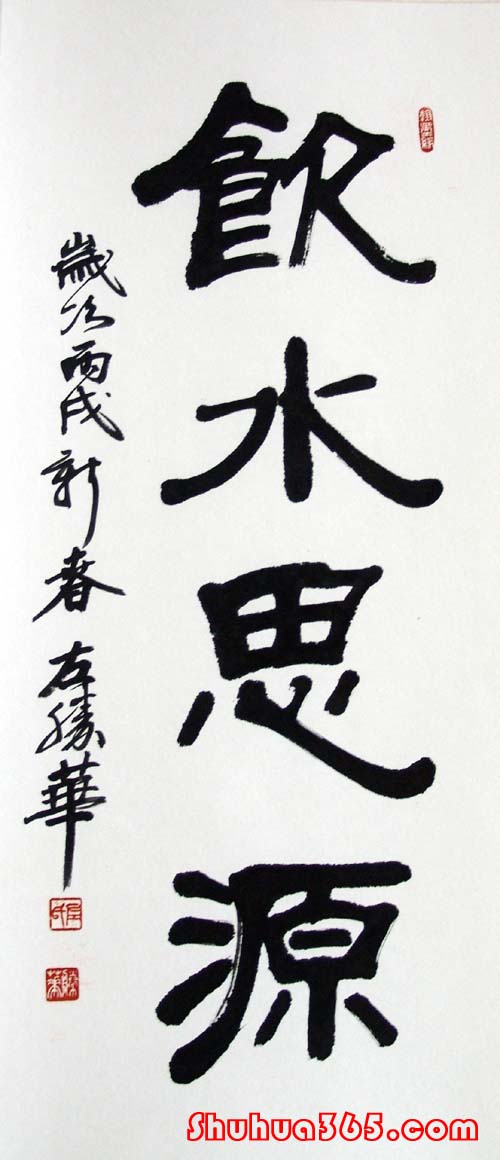 飲水思源
歲次丙戌新春左勝華
Shuhua365.com